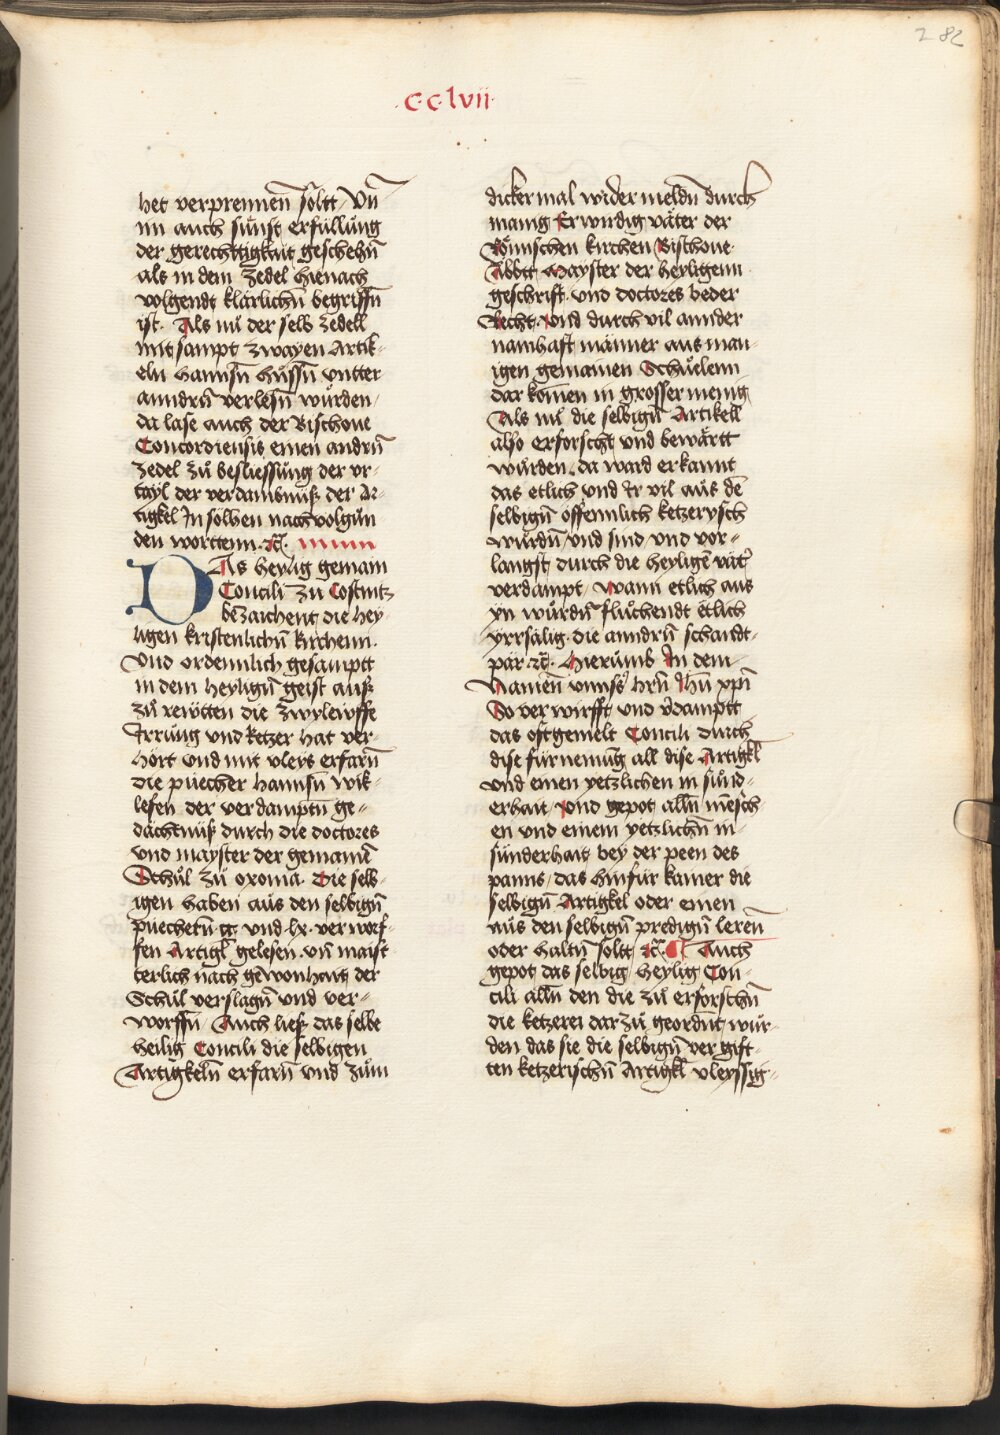 282
·cclvii·
het verprennen soltt / Vn̄
im auch sünst erfüllung
der gerechtigkait geschehn̄
als in dem zedel hienach
volgendt klärlichn̄ begriffn̄
ist. Als nu der selb zedell
mit sampt zwayen Artik-
eln hannsn̄ hussn̄ vntter
anndrn̄ verlesn̄ wurden /
da lase auch der Bischoue
Concordiensis einen andrn̄
zedel zu besliessung der vr-
tayl der verdambnüß der Ar-
tigkel In solhen nachvolgun
den wortten. ꝛc.
DAs heylig gemain
Concili zu Costnitz
bezaichent die hey-
ligen kristenlichn̄ kirchenn.
Vnd ordennlich gesamptt
in dem heylign̄ geist auß
zu rewtten die zwyleiffe
Irrung vnd ketzer hat ver-
hört vnd mit vleys erfarn̄
die püecher hannsn̄ wik-
lefen der verdamptn̄ ge-
dächtnüß durch die doctores
vnd mayster der gemainē
Schul zu oxonia. Die selb-
igen haben aus den selbign̄
püechern̄ cc vnd lx. verworf-
fen Artigl̄ gelesen. vn̄ maist-
terlich nach gewonhait der
Schul verslagn̄ vnd ver-
worffn̄ / Auch ließ das selbe
heilig Concili die selbigen
Artigkeln̄ erfarn̄ vnd zum
dickermal wider meldn̄ durch
manig Erwirdig väter der
Römischen kirchen Bischoue.
Äbbtt Mayster der heyligenn
geschrift. vnd doctores beder
Recht. Vnd durch vil annder
namhaft männer aus man-
igen gemainen Schuelenn
dar komen in grosser menig
Als nu die selbign̄ Artikell
also erforscht vnd bewärtt
wurden. da ward erkannt
das etlich vnd Ir vil aus dē
selbign̄ offennlich ketzerysch
würdn̄ / vnd sind vnd vor-
langst durch die heyligē vät̄
verdampt / wann etlich aus
yn würdn̄ fluchendt etlich
yrrsälig. die anndrn̄ schandt-
pär ꝛc. Hierumb In dem
Namen vnns̄ hrn̄ Jhū xp̄i
So verwirfft vnd v̄damptt
das oftgemelt Concili durch
dise fürnemung all dise Artigkl̄
vnd einen yetzlichen in sünd-
erhait / vnd gepot alln̄ mensch
en vnd einem yetzlichn̄ in-
sünderhait bey der peen des
panns / das hinfür kainer die
selbign̄ Artigkel oder einen
aus den selbign̄ predign̄ leren̄
oder haltn̄ soltt ꝛc. ¶ Auch
gepot das selbig heylig Con-
cili alln̄ den die zu erforschn̄
die ketzerei darzu geordnt wur-
den das sie die selbign̄ vergift-
ten ketzerischn̄ Artigkl̄ vleyssig-